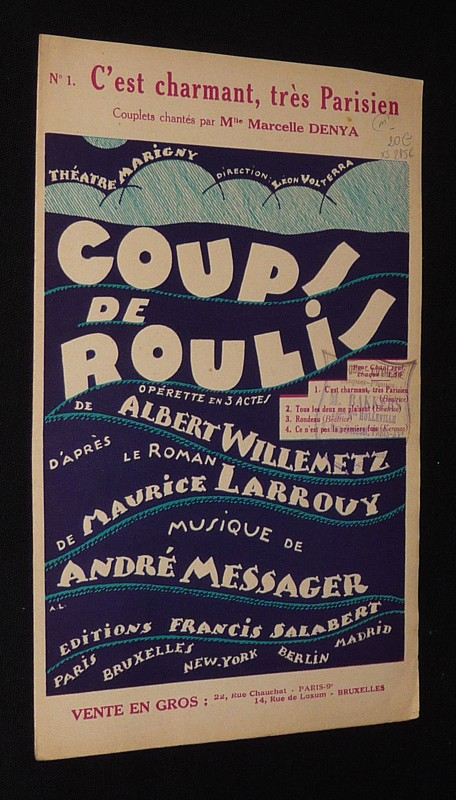 N° 1. C'est charmant, très Parisien
Couplets chantés par Mlle Marcelle DENYA
20€
THÉATRE MARIGNY
DIRECTION: LÉON VOLTERRA
COUPS
DE
ROULIS
OPÉRETTE EN 3 ACTES
DE ALBERT WILLEMETZ
D'APRÈS LE ROMAN
DE MAURICE LARROUY
MUSIQUE DE
ANDRÉ MESSAGER
A.L.
EDITIONS FRANCIS SALABERT
PARIS BRUXELLES NEW-YORK BERLIN MADRID
Pour Chant seul
chaque : 1.50
1. C'est charmant, très Parisien
(Béatrice)
2. Tous les deux me plaisent (Béatrice)
3. Rondeau (Béatrice)
4. Ce n'est pas la première fois (Kermao)
VENTE EN GROS : 22, Rue Chauchat - PARIS-9e
14, Rue de Loxum - BRUXELLES